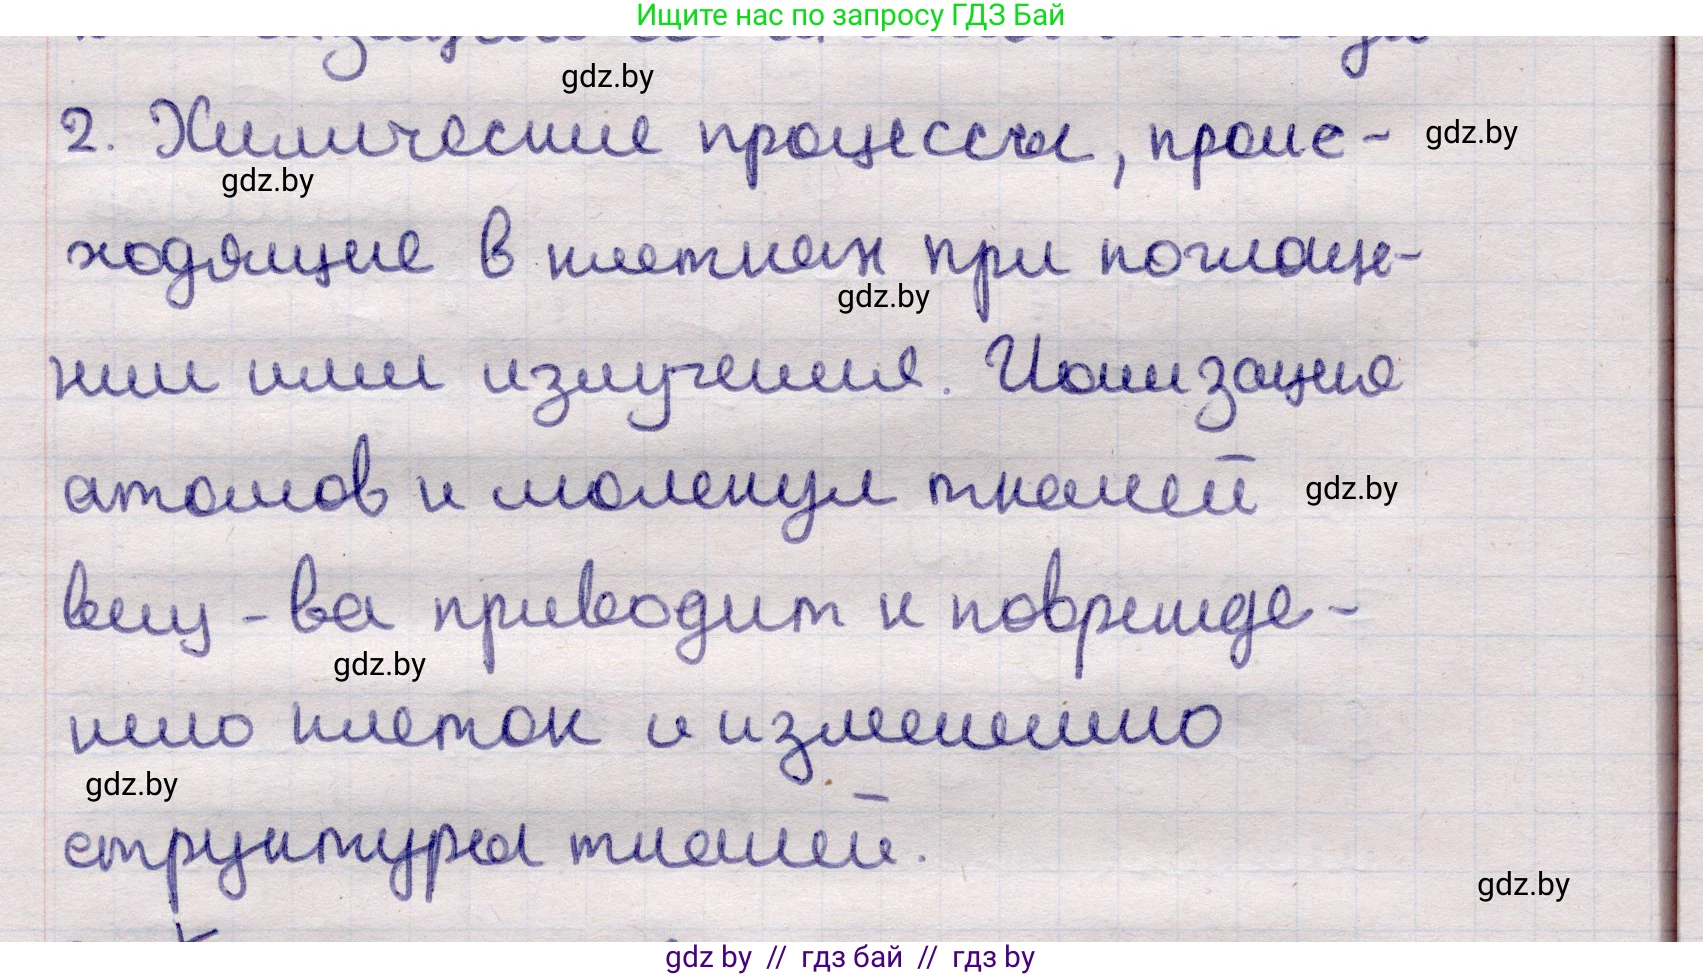 Ищите нас по запросу ГДЗ Бай
gdz.by
2. Химические процессы, проис-
gdz.by
gdz.by
ходящие в клетках при поглаще-
gdz.by
нии ими излучения. Ионизация
атомов и молекул тканей
gdz.by
вещ-ва приводит к поврежде-
gdz.by
нию клеток и изменению
gdz.by
структуры тканей.
gdz.by
gdz by // гдз бай // гдз by